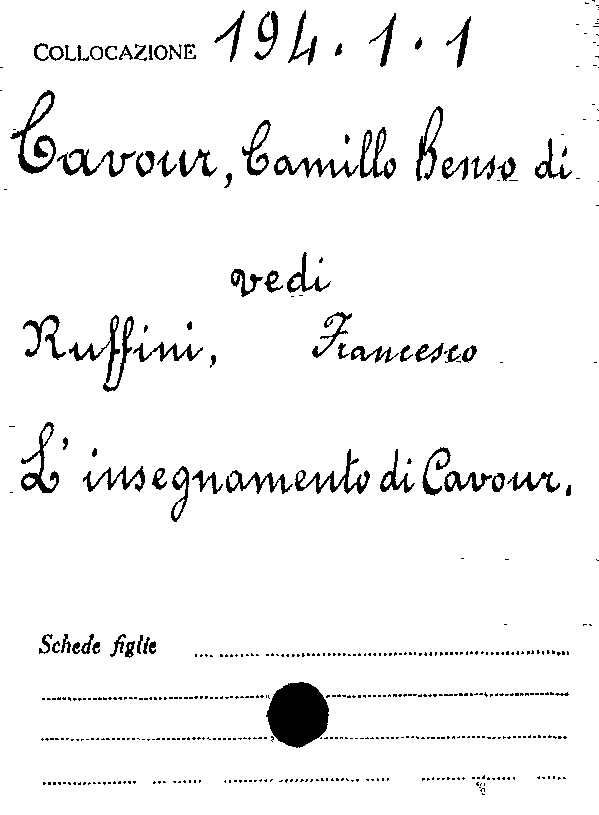 COLLOCAZIONE 194.1.1
Cavour, Camillo Benso di
vedi
Ruffini, Francesco
L'insegnamento di Cavour.
Schede figlie